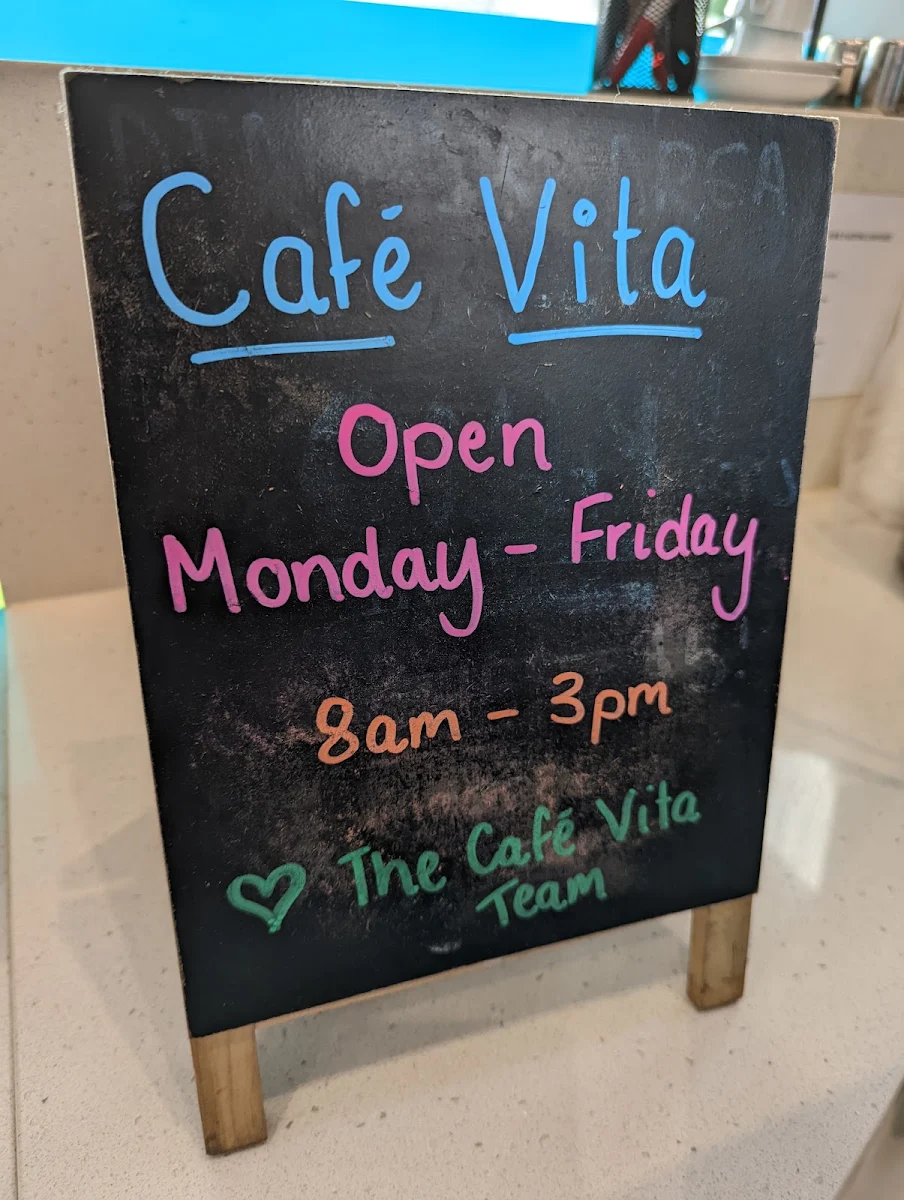 Café Vita
Open
Monday - Friday
8am - 3pm
♡ The Café Vita
Team